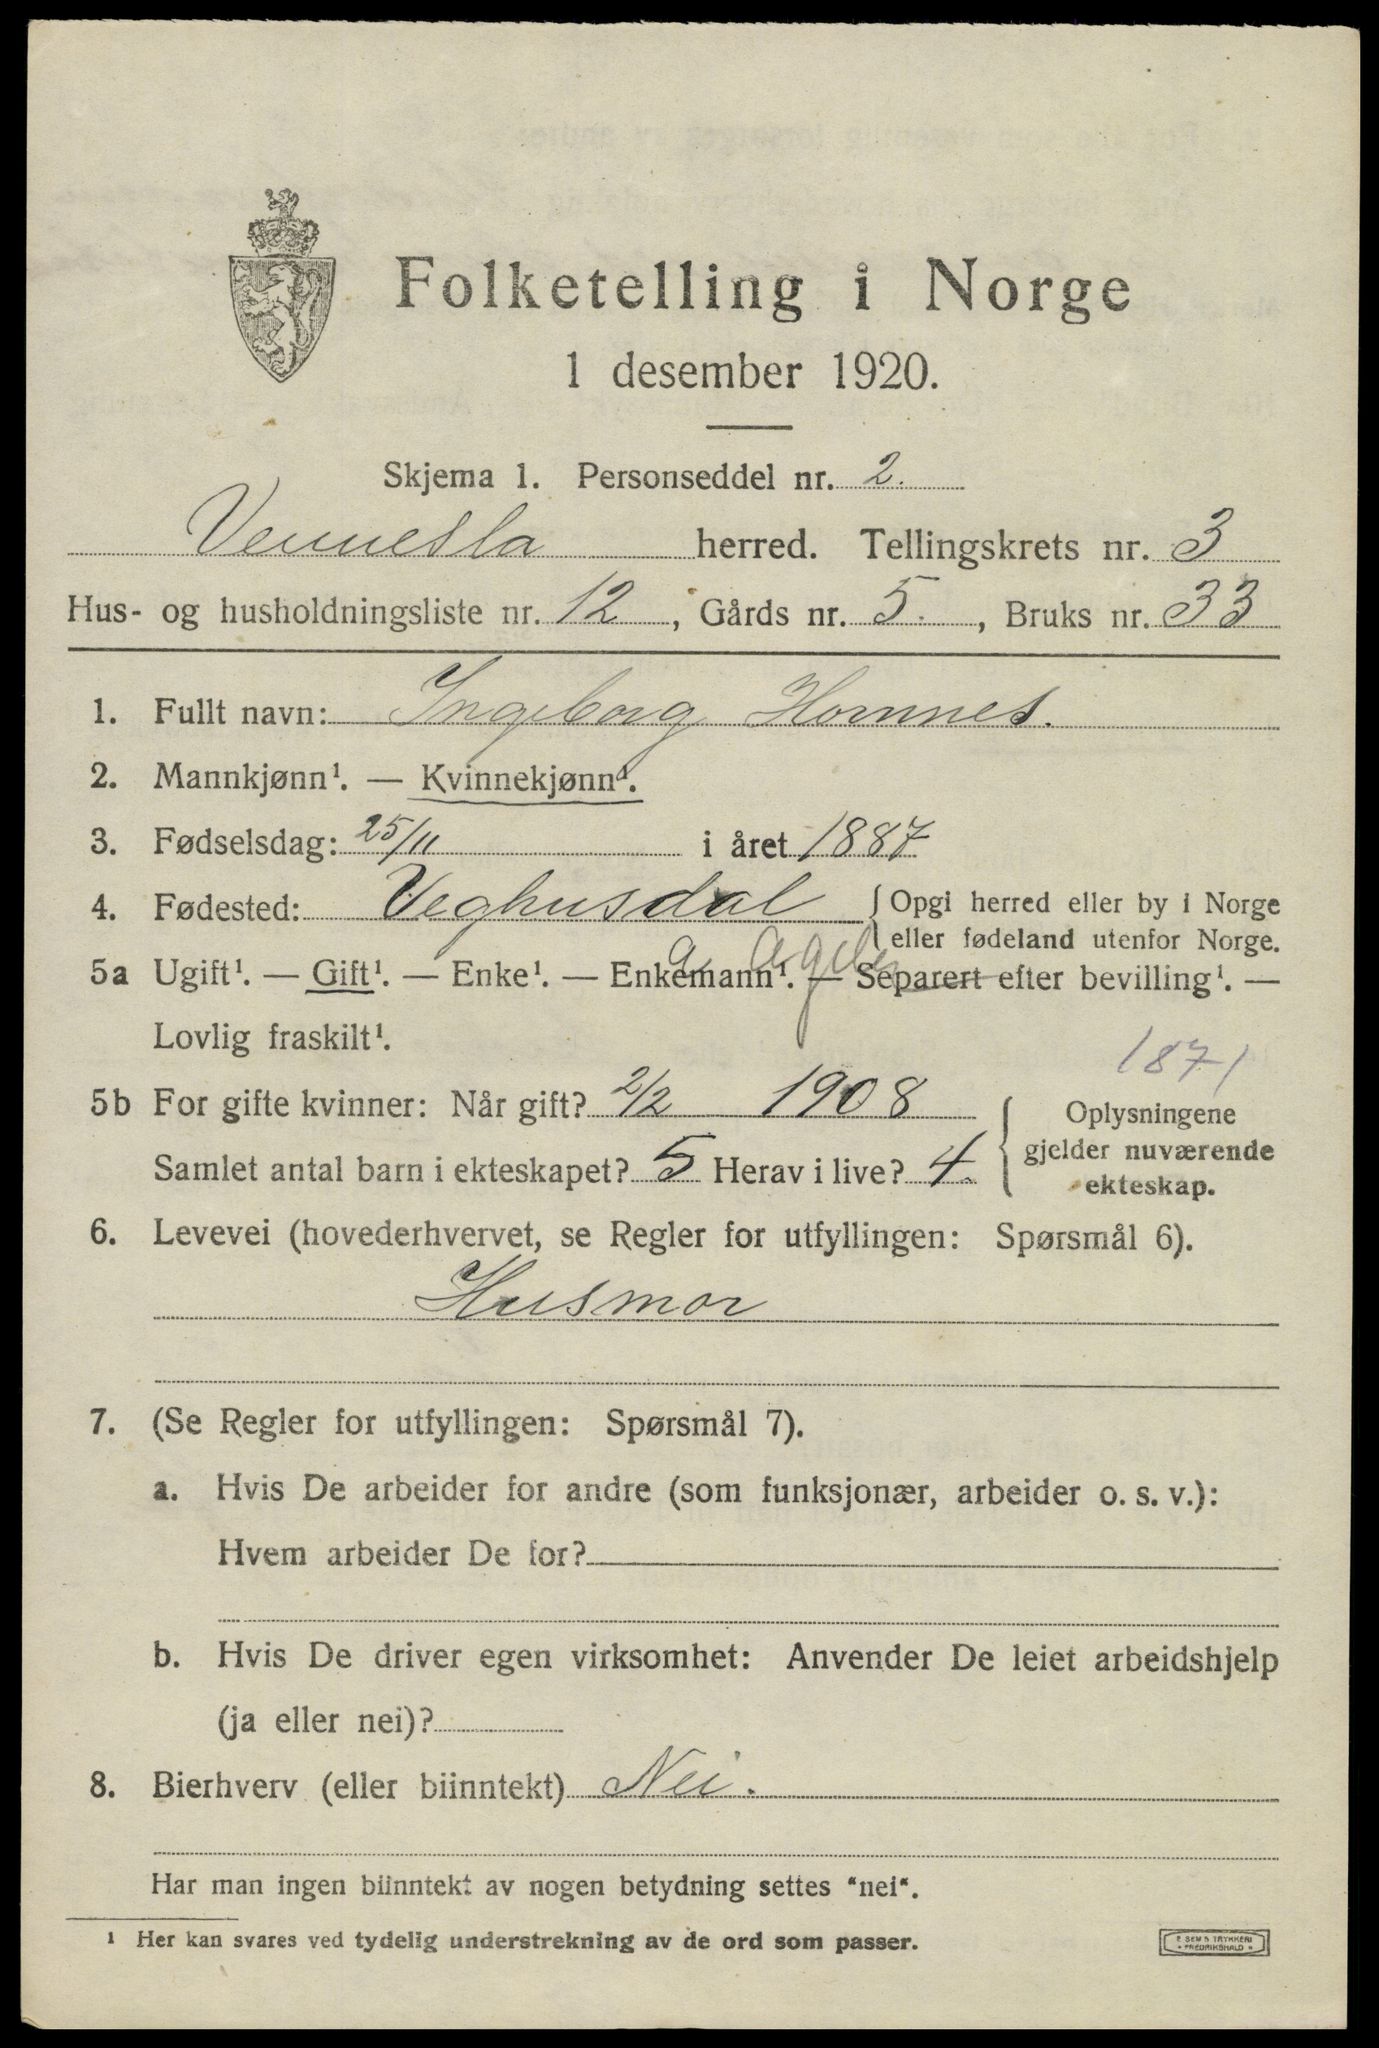 Folketelling i Norge
1 desember 1920.
Skjema 1. Personseddel nr. 2.
Vennesla herred. Tellingskrets nr. 3
Hus- og husholdningsliste nr. 12, Gårds nr. 5., Bruks nr. 33
1. Fullt navn: Ingeborg Hornnes.
2. Mannkjønn¹. — Kvinnekjønn¹.
3. Fødselsdag: 25/11 i året 1887
4. Fødested: Veghusdal { Opgi herred eller by i Norge
eller fødeland utenfor Norge.
5a Ugift¹. — Gift¹. — Enke¹. — Enkemann¹. — Separert efter bevilling¹. —
Lovlig fraskilt¹.
1871
5b For gifte kvinner: Når gift? 2/2 1908
Samlet antal barn i ekteskapet? 5 Herav i live? 4.
{ Oplysningene
gjelder nuværende
ekteskap.
6. Levevei (hovederhvervet, se Regler for utfyllingen: Spørsmål 6).
Husmor
7. (Se Regler for utfyllingen: Spørsmål 7).
a. Hvis De arbeider for andre (som funksjonær, arbeider o. s. v.):
Hvem arbeider De for?
b. Hvis De driver egen virksomhet: Anvender De leiet arbeidshjelp
(ja eller nei)?
8. Bierhverv (eller biinntekt) Nei.
Har man ingen biinntekt av nogen betydning settes "nei".
¹ Her kan svares ved tydelig understrekning av de ord som passer.
E SEM'S TRYKKERI
FREDRIKSHALD